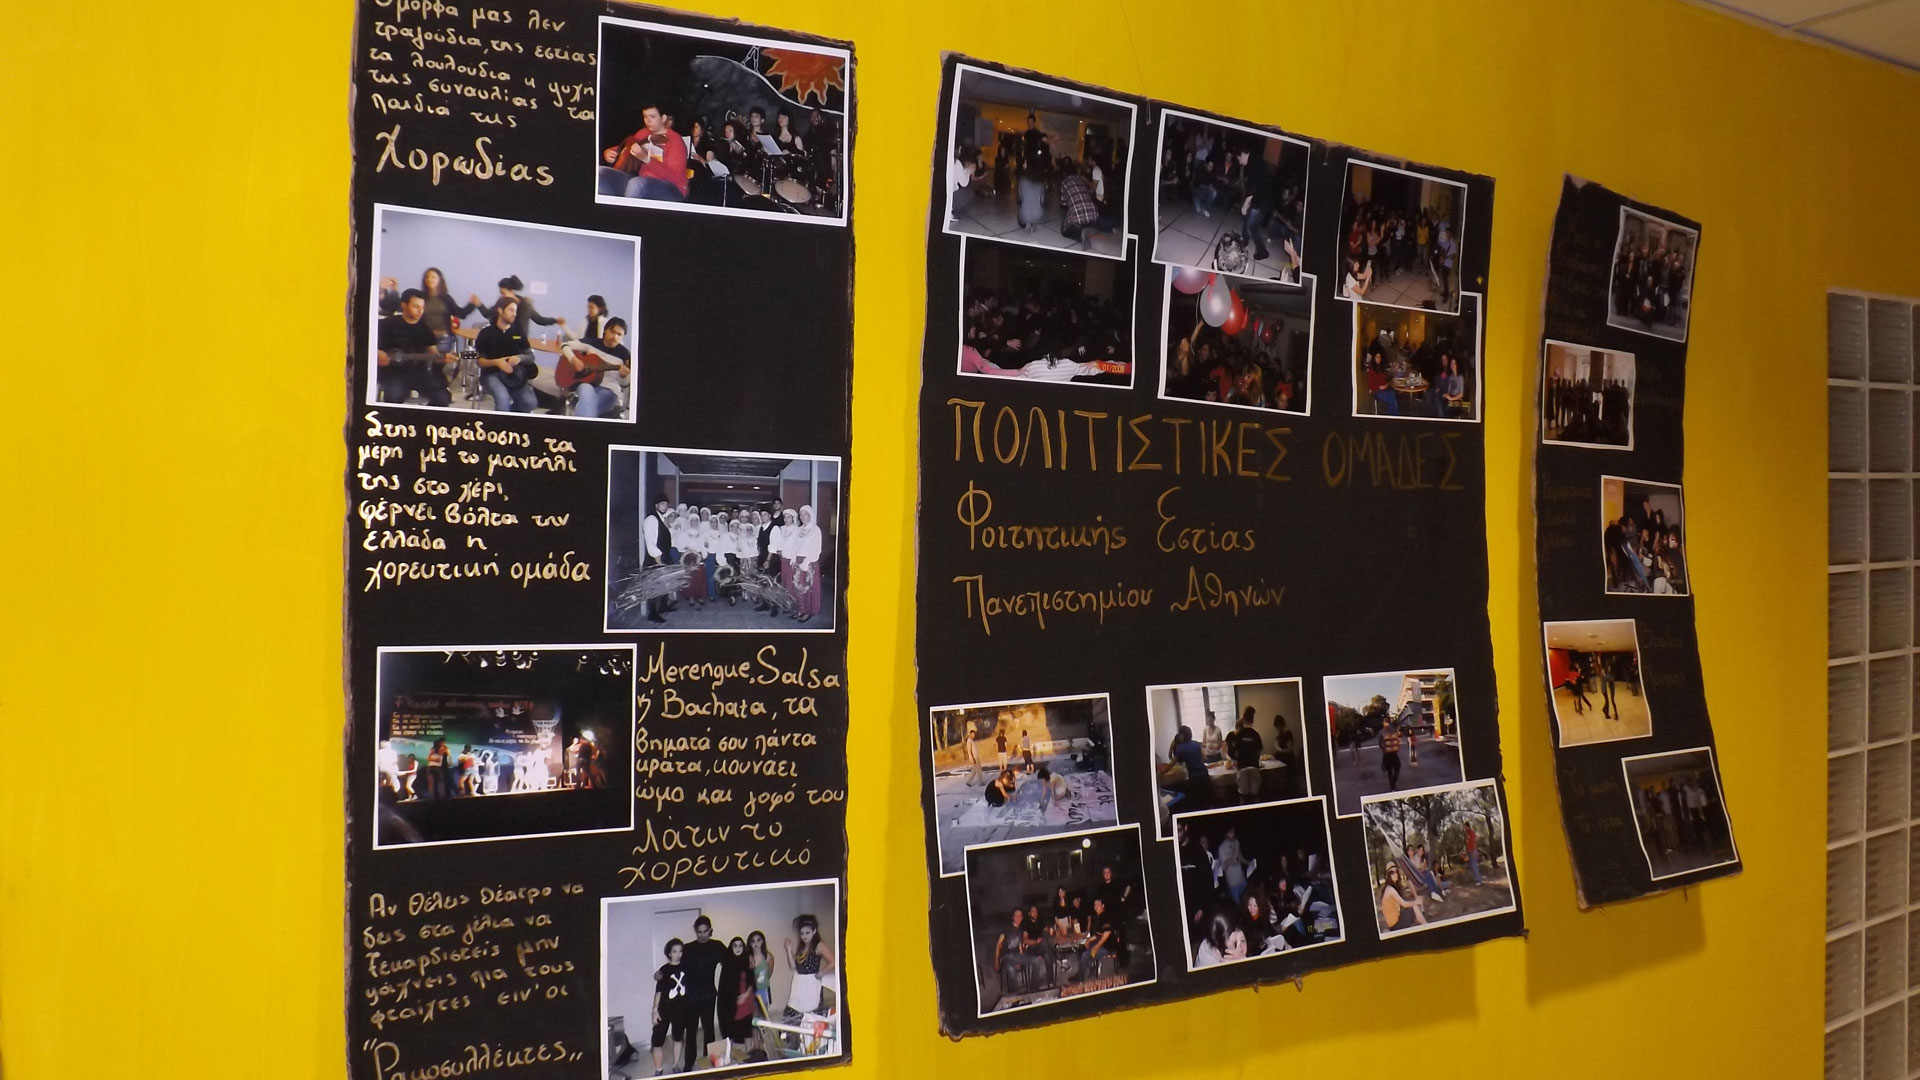 Όμορφα μας λεν
τραγούδια, της εστίας
τα λουλούδια κ ψυχή
της συναυλίας τα
παιδιά της
Χορωδίας
Στης παράδοσης τα
μέρη με το μαντήλι
της στο χέρι,
φέρνει βόλτα την
Ελλάδα η
χορευτική ομάδα
Merengue, Salsa
κ' Bachata, τα
βήματά σου πάντα
κράτα, κουνάει
ώμο και γοφό του
Λάτιν το
χορευτικό
Αν θέλεις θέατρο να
δεις στα γέλια να
ξεκαρδιστείς μην
ψάχνεις πια τους
φταίχτες ειν' οι
"Ρακοσυλλέκτες,,
ΠΟΛΙΤΙΣΤΙΚΕΣ ΟΜΑΔΕΣ
Φοιτητικής Εστίας
Πανεπιστημίου Αθηνών